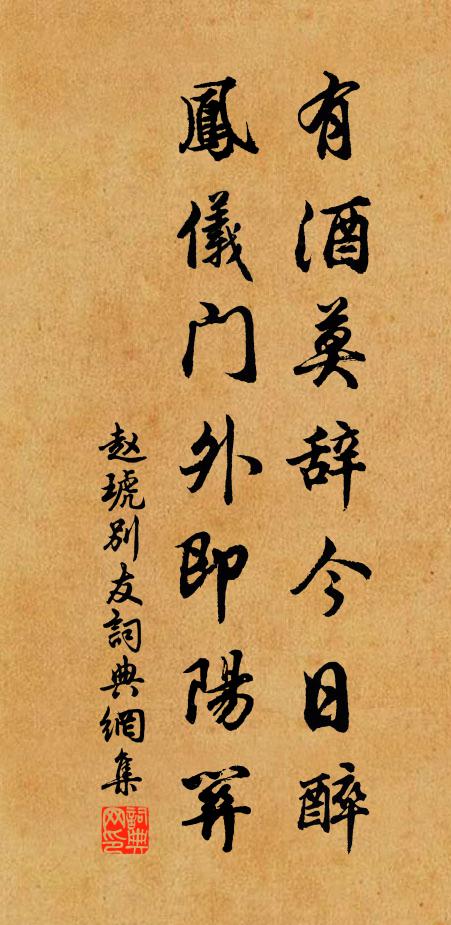 有酒莫辞今日醉
鳳儀门外即陽关
赵琥别友詞典網集
詞典网印